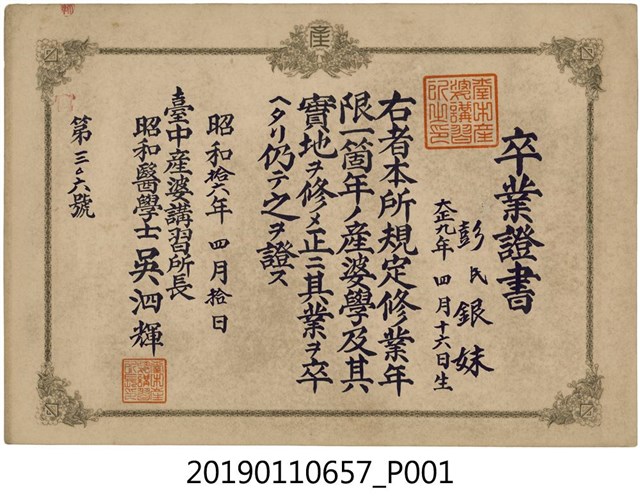 產
卒業證書
彭氏銀妹
大正九年 四月十六日生
右者本所規定修業年
限一箇年ノ產婆學及其
實地ヲ修メ正ニ其業ヲ卒
ヘタリ仍テ之ヲ證ス
昭和拾六年 四月拾日
臺中產婆講習所長
昭和醫學士 吳泗輝
20190110657_P001